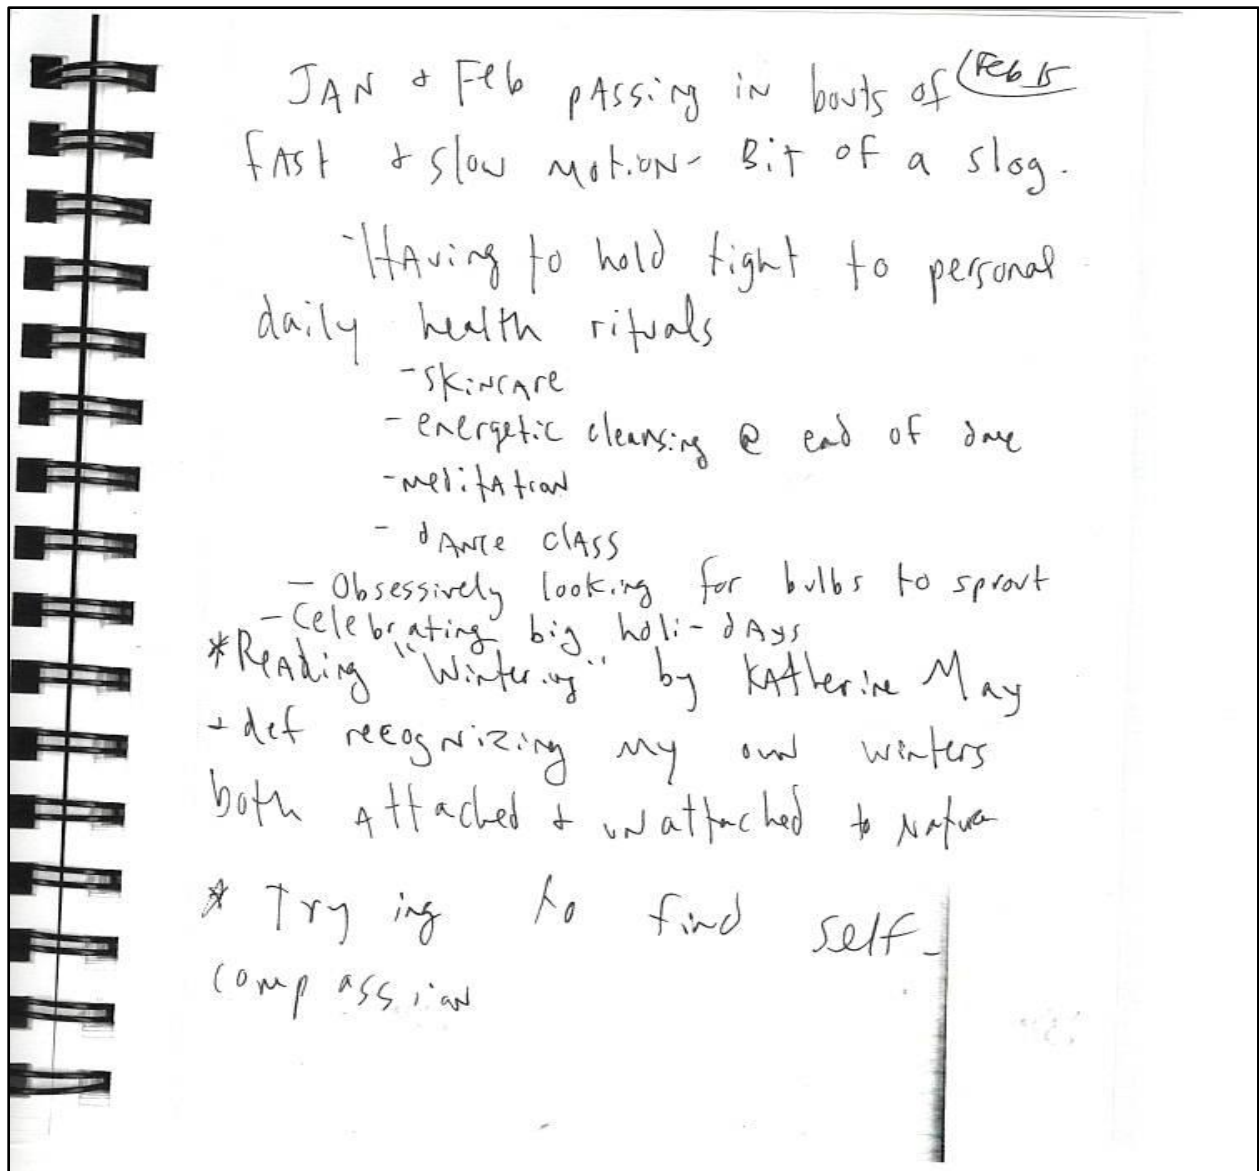 Feb 15
JAN + Feb pAssing in bouts of
fAst + slow motion - Bit of a slog.
- HAving to hold tight to personal
daily health rituals
- skincare
- energetic cleansing @ end of day
- meditAtion
- dANce clASS
- Obsessively looking for bulbs to sprout
- Celebrating big holi-dAys
* ReAding "Wintering" by KAtherine May
+ def recogNizing my own winters
both Attached + unattached to Nature
* Trying to find self-
compassion